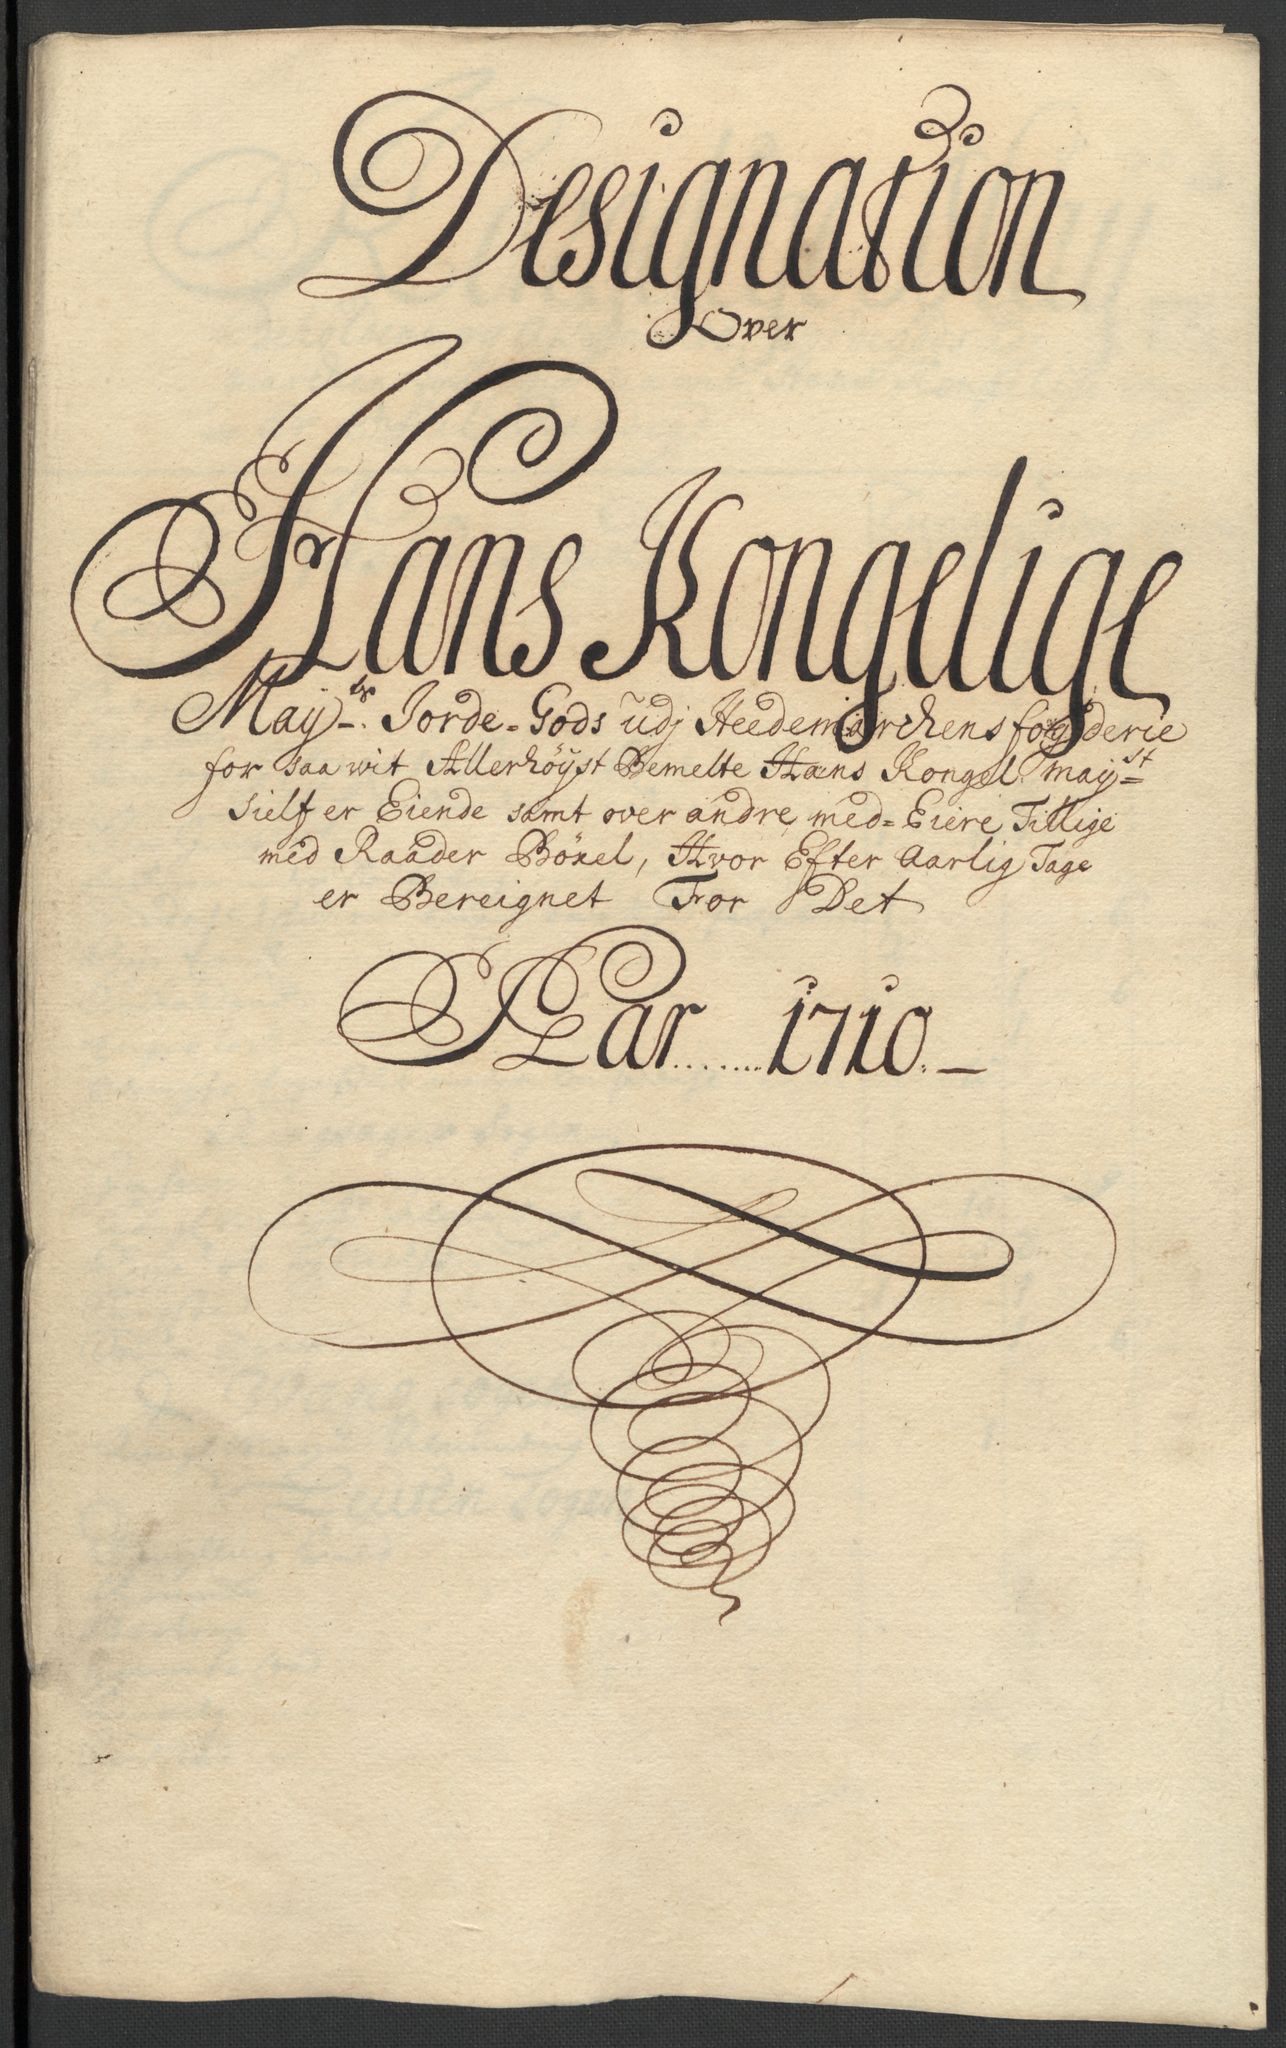 Designation
Over
Hans Kongelige
Mayts. Jorde-Gods udj Heedemarchens fogderie
for saa wit Allerhöyst Bemelte Hans Kongel. mayst
sielf er Eiende samt over andre med-Eiere Tillige
med Raader Böxel, Hvor Efter Aarlig Tage
er Bereignet For Det
Aar.......1710.